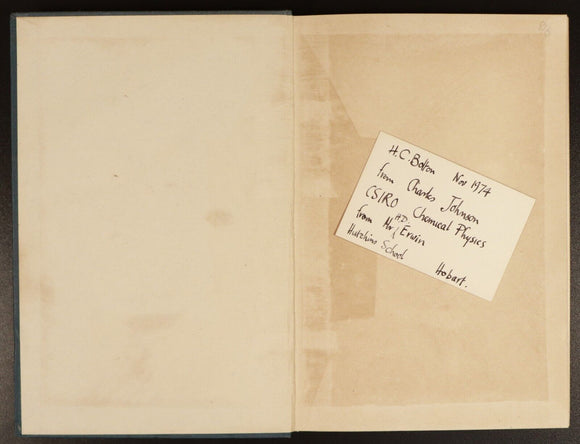 H.C. Bolton Nov 1974
from Charles Johnson
CSIRO Chemical Physics
from Mr H.D. Erwin
Hutchins School
Hobart.